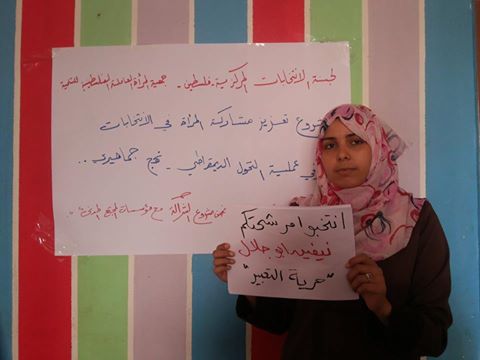 لجنة الانتخابات المركزية - فلسطين - جمعية المرأة العاملة الفلسطينية للتنمية
مشروع تعزيز مشاركة المرأة في الانتخابات
في عملية التحول الديمقراطي - نهج جماهيري ..
ضمن مشروع الشراكة مع مؤسسات المجتمع المدني
انتخبوا مرشحتكم
نيفين ابو جلال
"حرية التعبير"